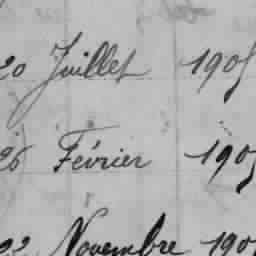 20 Juillet 1905
26 Février 1905
22 Novembre 190